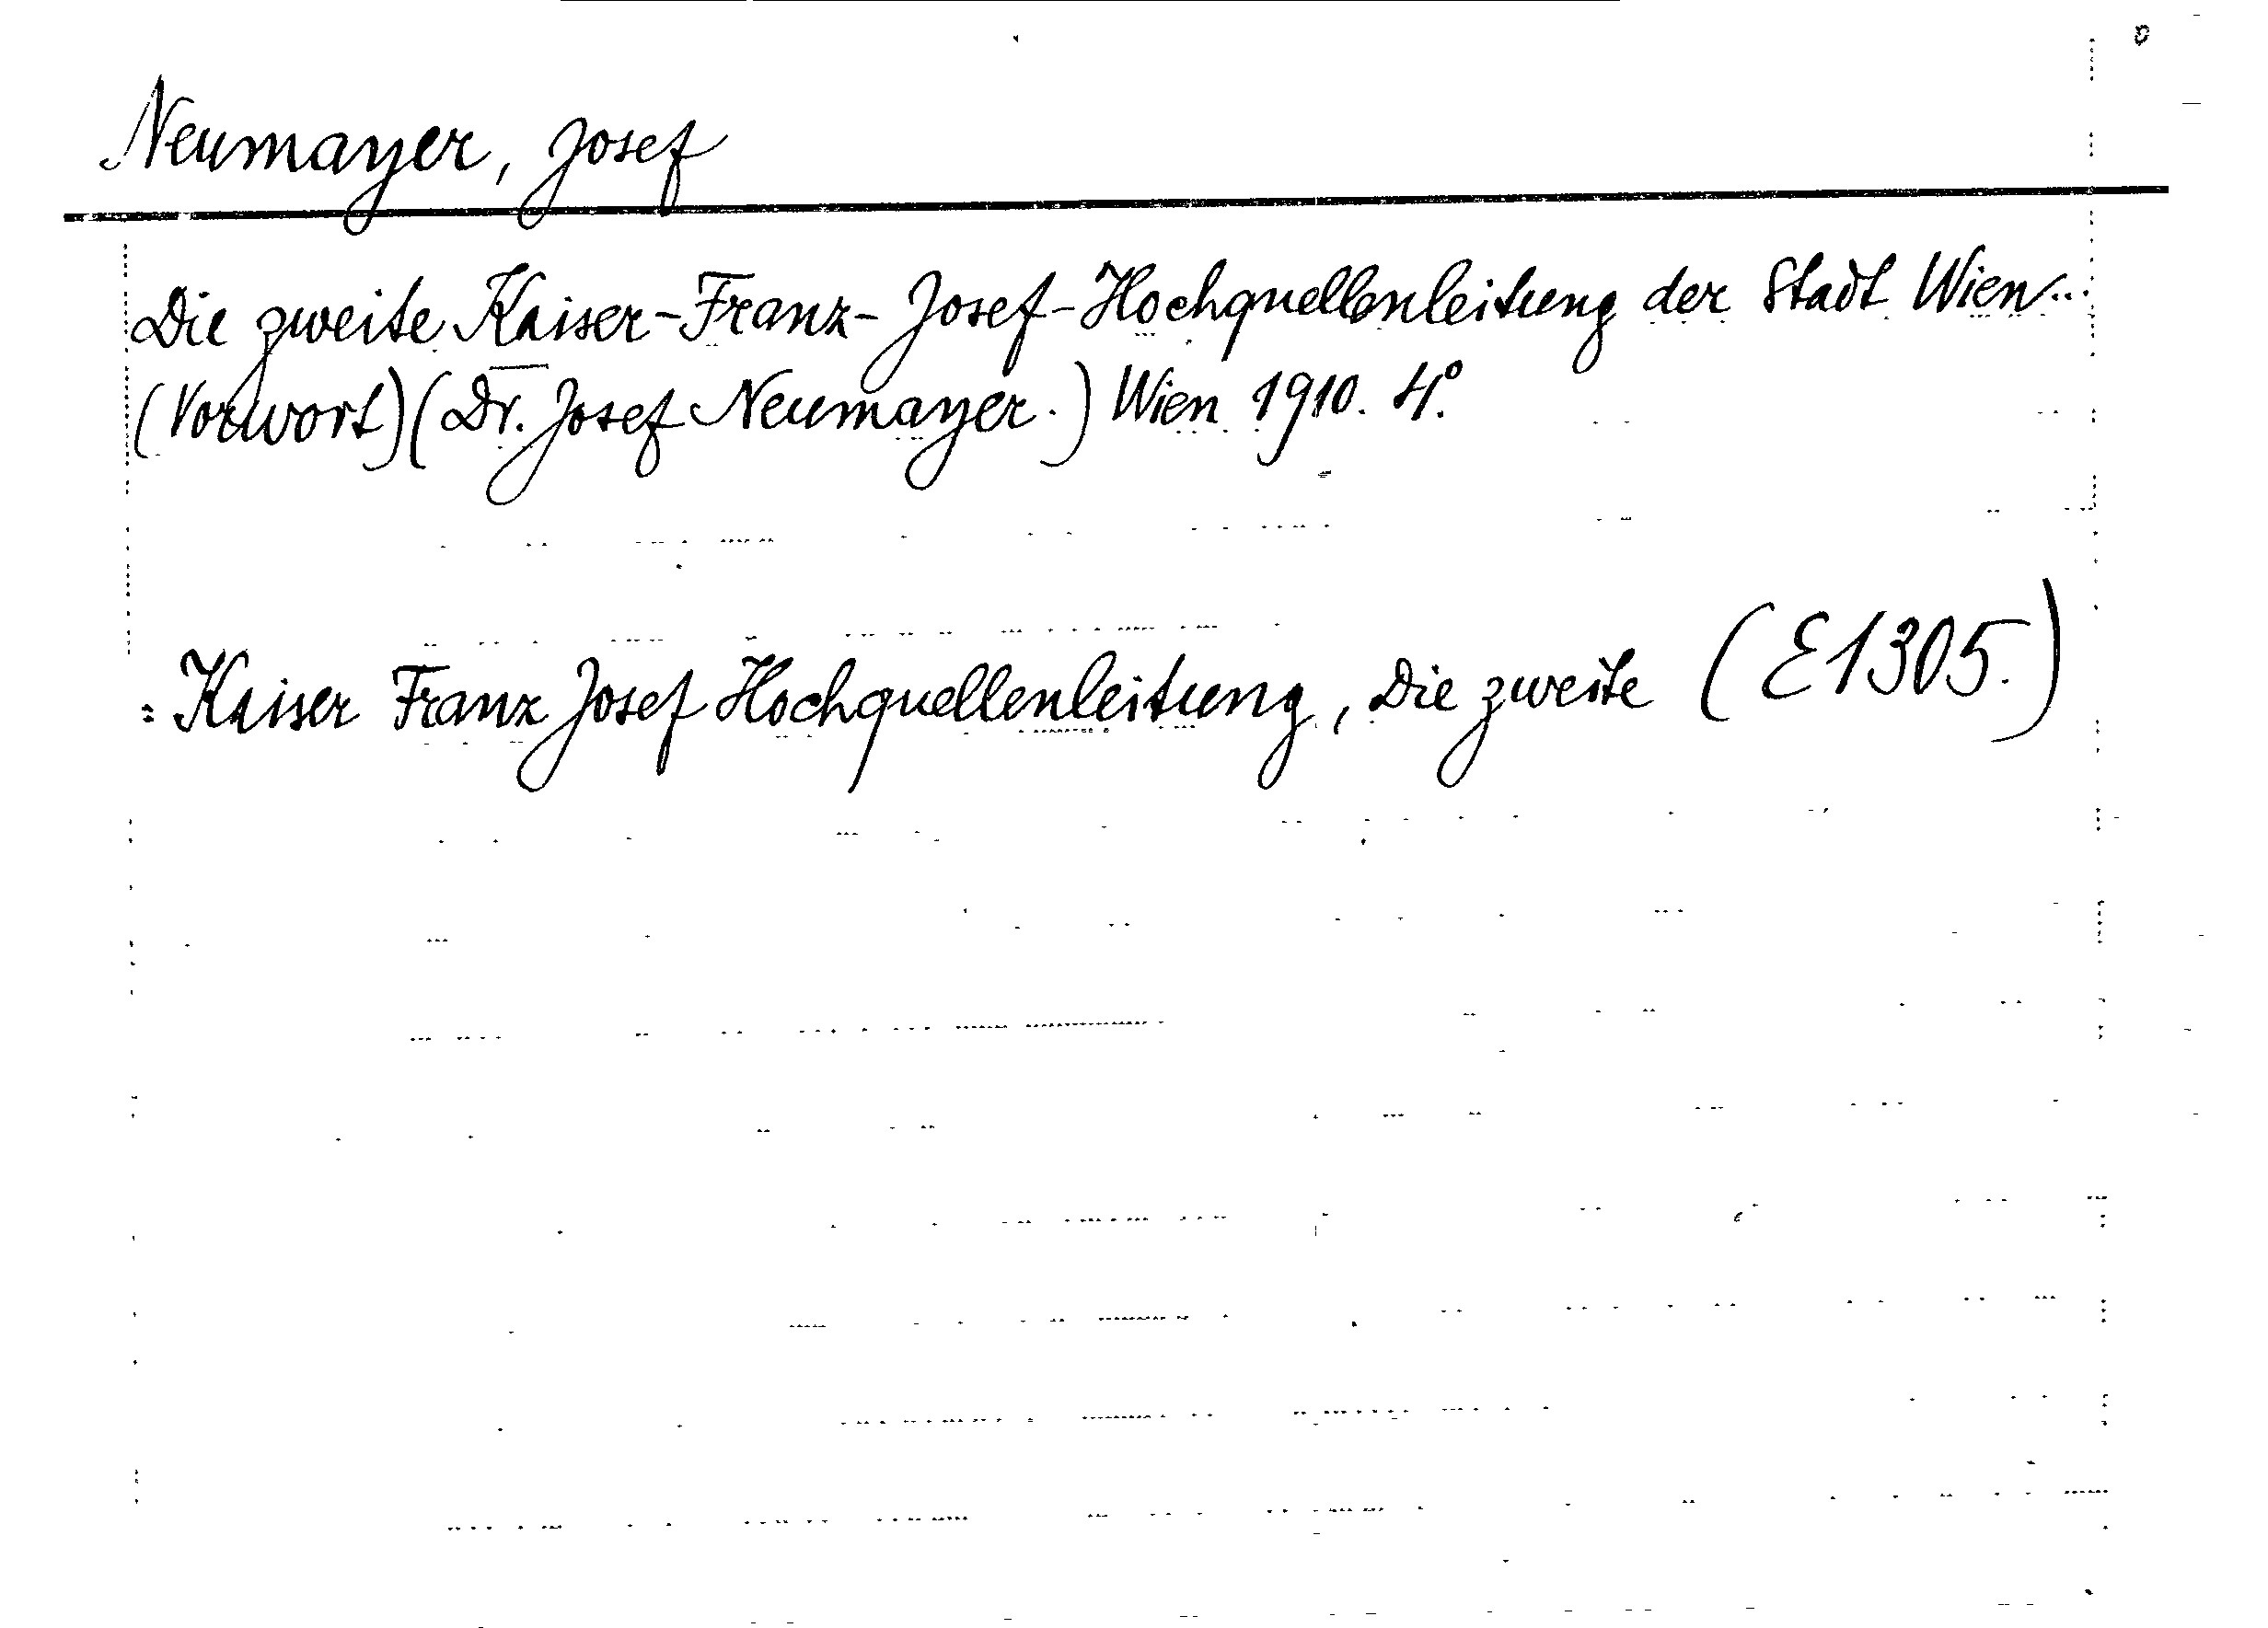 Neumayer, Josef
Die zweite Kaiser-Franz-Josef-Hochquellenleitung der Stadt Wien...
(Vorwort) (Dr. Josef Neumayer.) Wien 1910. 4°.
: Kaiser Franz Josef Hochquellenleitung, Die zweite (E1305.)